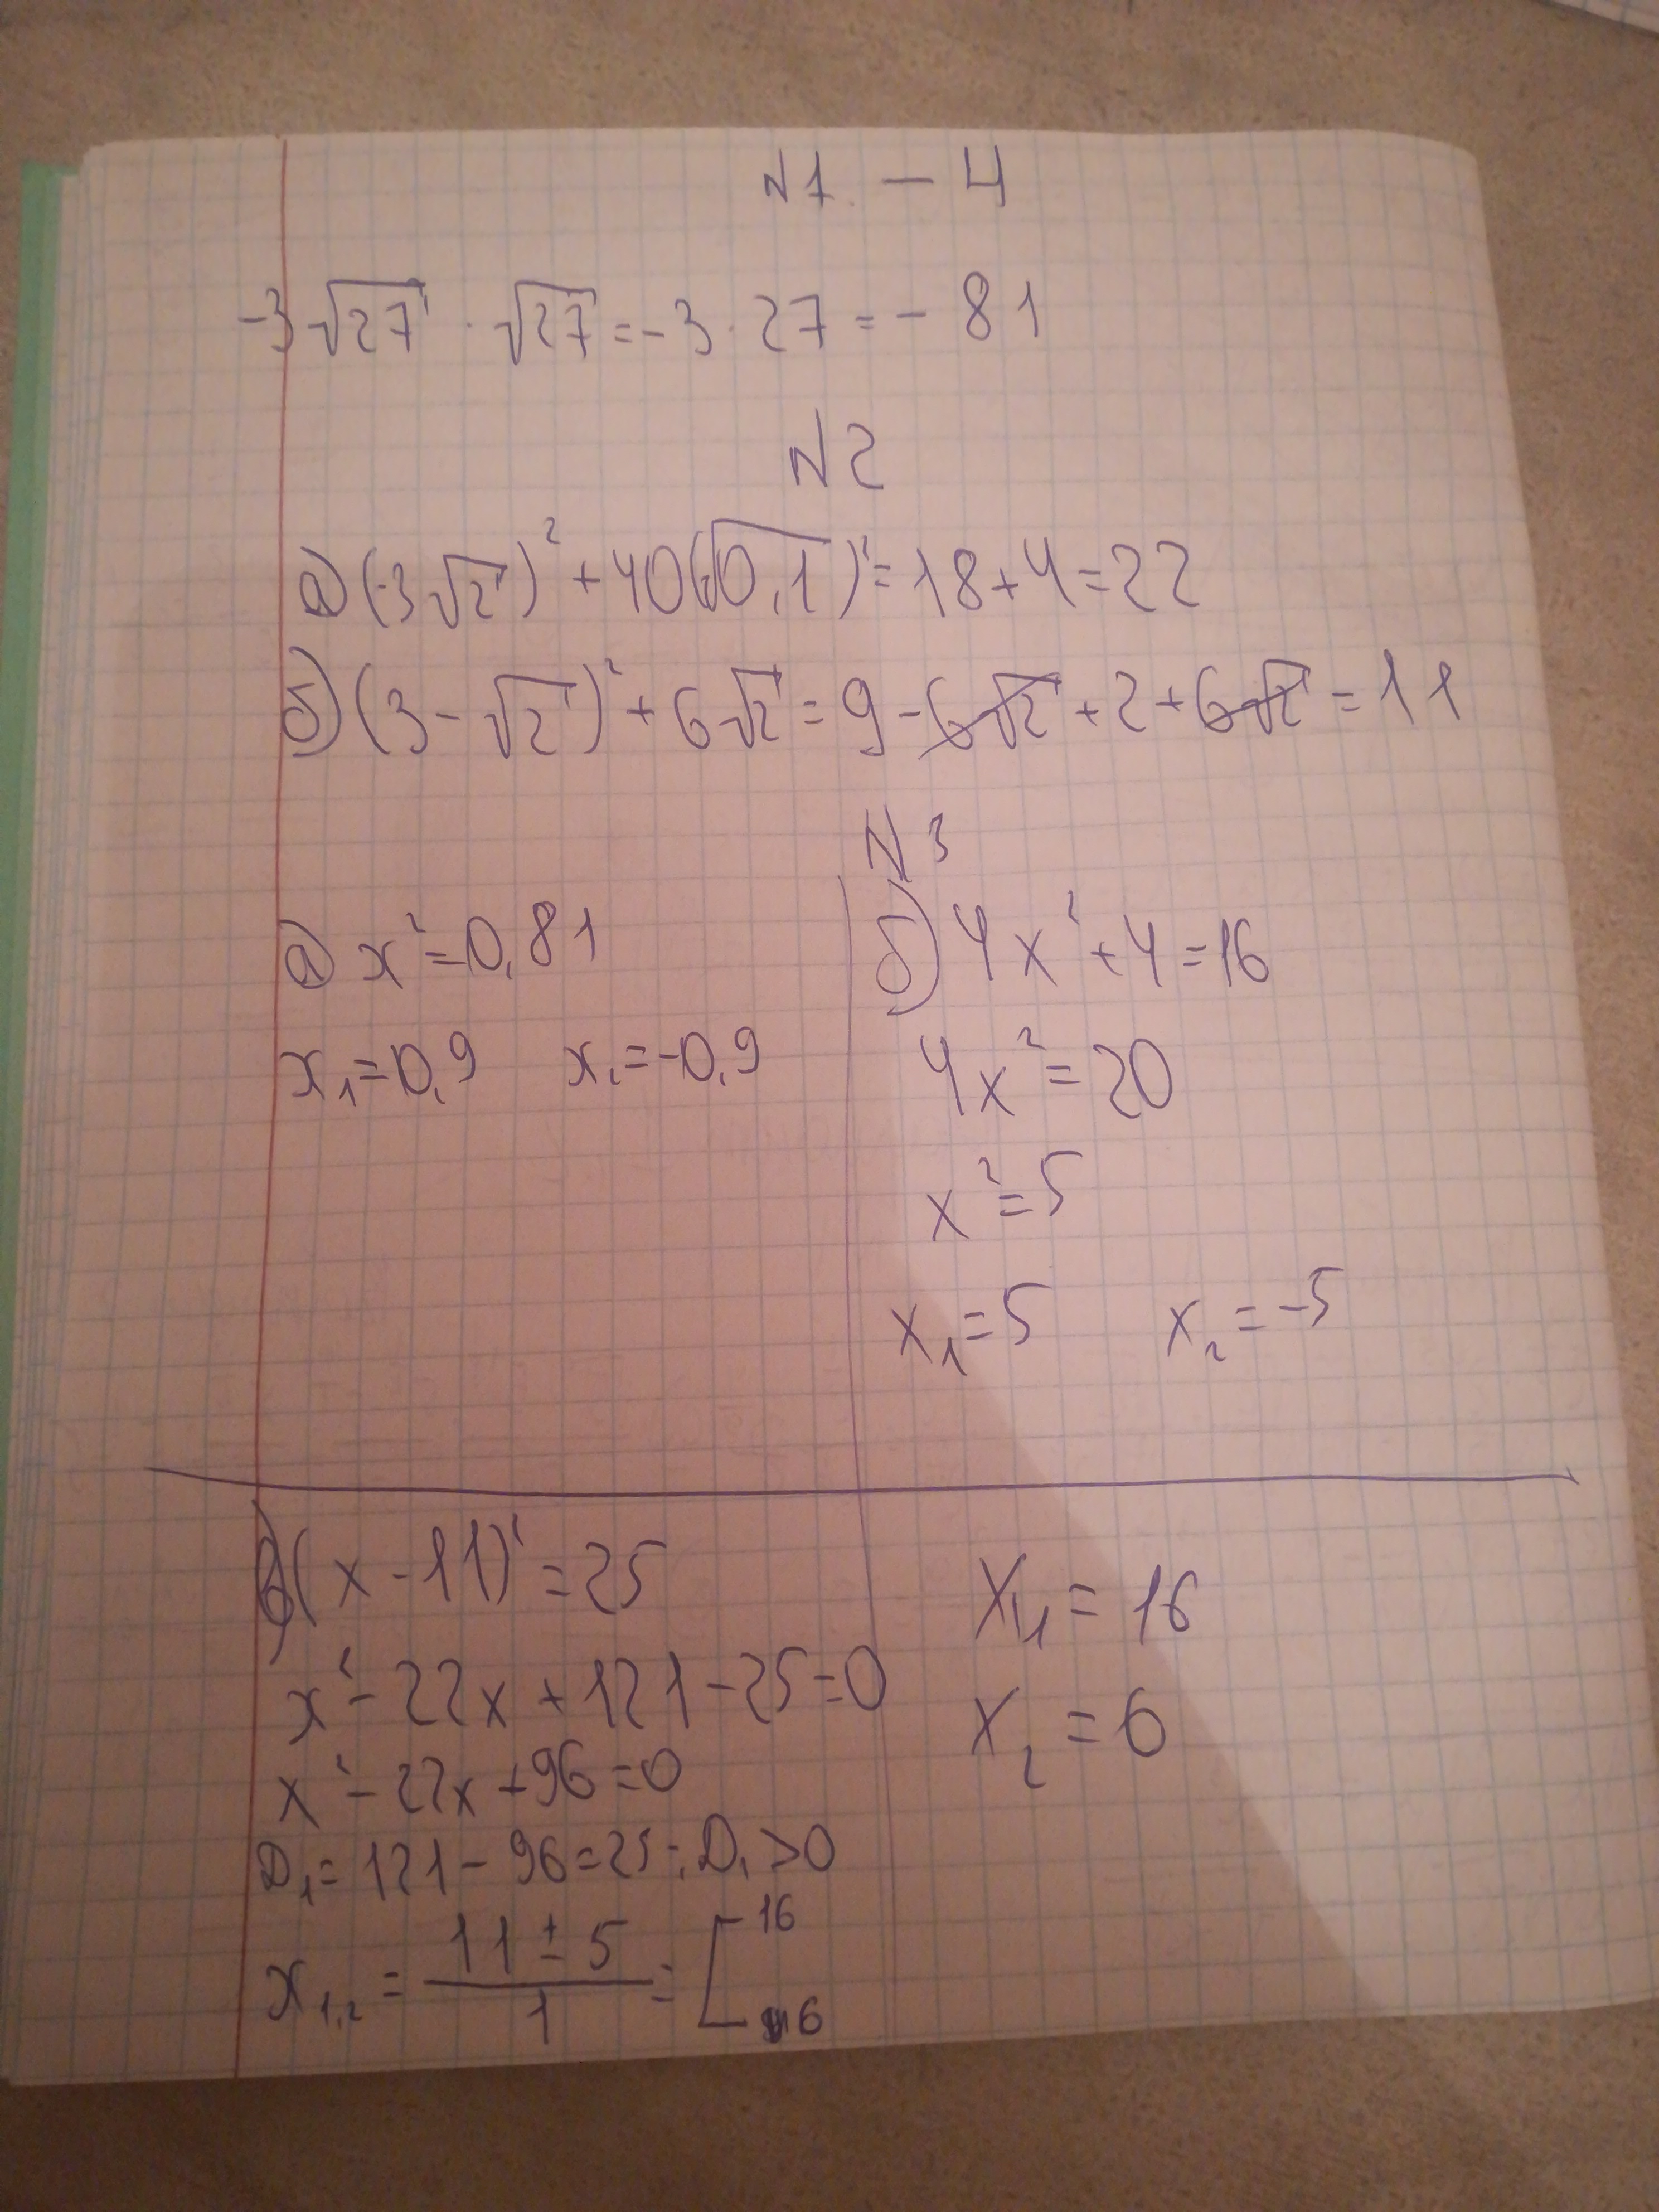 №1. – 4
-3√27 · √27 = -3 · 27 = - 81
№2
а) (-3√2)² + 40(√0,1)² = 18 + 4 = 22
б) (3 - √2)² + 6√2 = 9 - 6√2 + 2 + 6√2 = 11
№3
а) x² = 0,81
x₁ = 0,9 x₂ = -0,9
б) 4x² + 4 = 16
4x² = 20
x² = 5
x₁ = 5 x₂ = -5
в) (x - 11)² = 25
x² - 22x + 121 - 25 = 0
x² - 22x + 96 = 0
D₁ = 121 - 96 = 25; D₁ > 0
x₁,₂ = (11 ± 5)/1 = [16
6
x₁ = 16
x₂ = 6